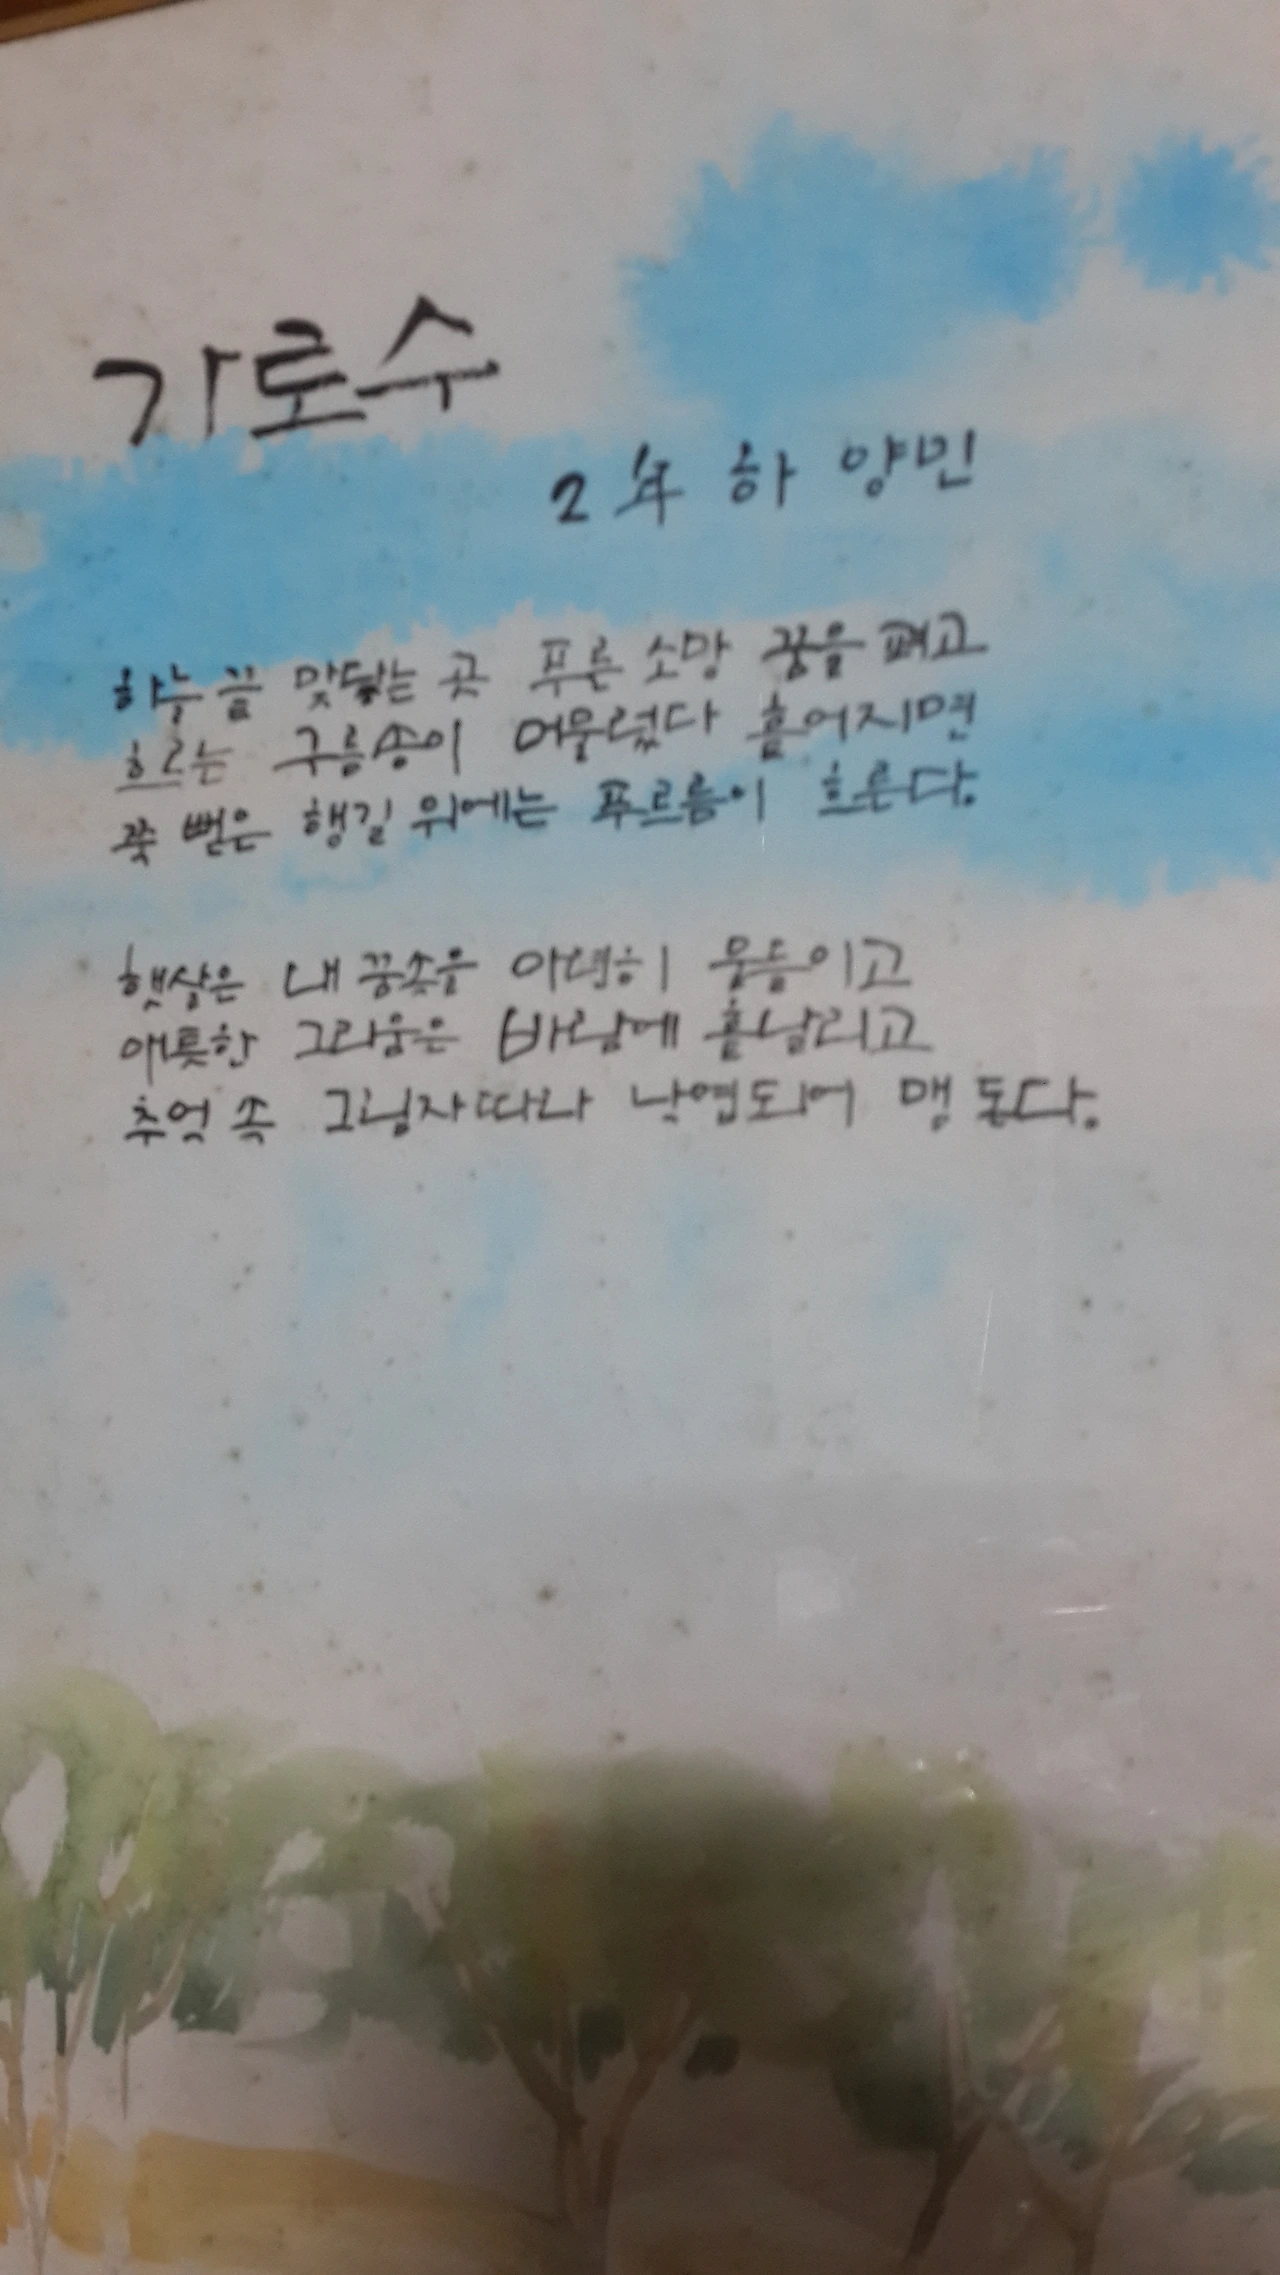 가로수
2年 하 양민
하늘 끝 맞닿는 곳 푸른 소망 꿈을 펴고
흐르는 구름송이 어물렀다 흩어지면
쭉 뻗은 행길 위에는 푸르름이 흐른다.
햇살은 내 꿈속을 아련히 물들이고
애틋한 그리움은 바람에 흩날리고
추억 속 그님자따라 낙엽되어 맴 돈다.